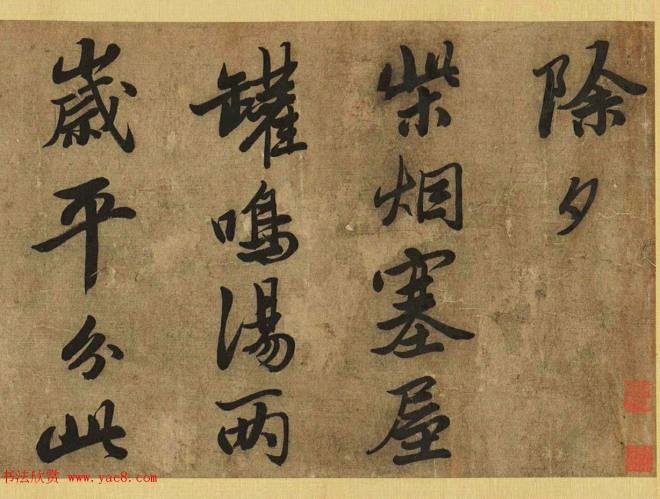 除夕
柴烟塞屋
罐鳴湯两
歲平分此
书法欣赏 www.yac8.com